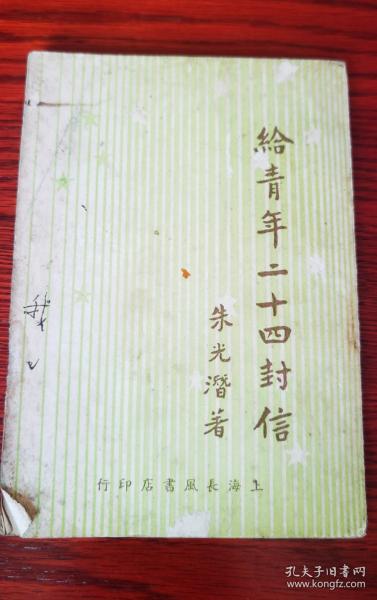 給青年二十四封信
朱光潛著
上海長風書店印行
孔夫子旧书网
www.kongfz.com